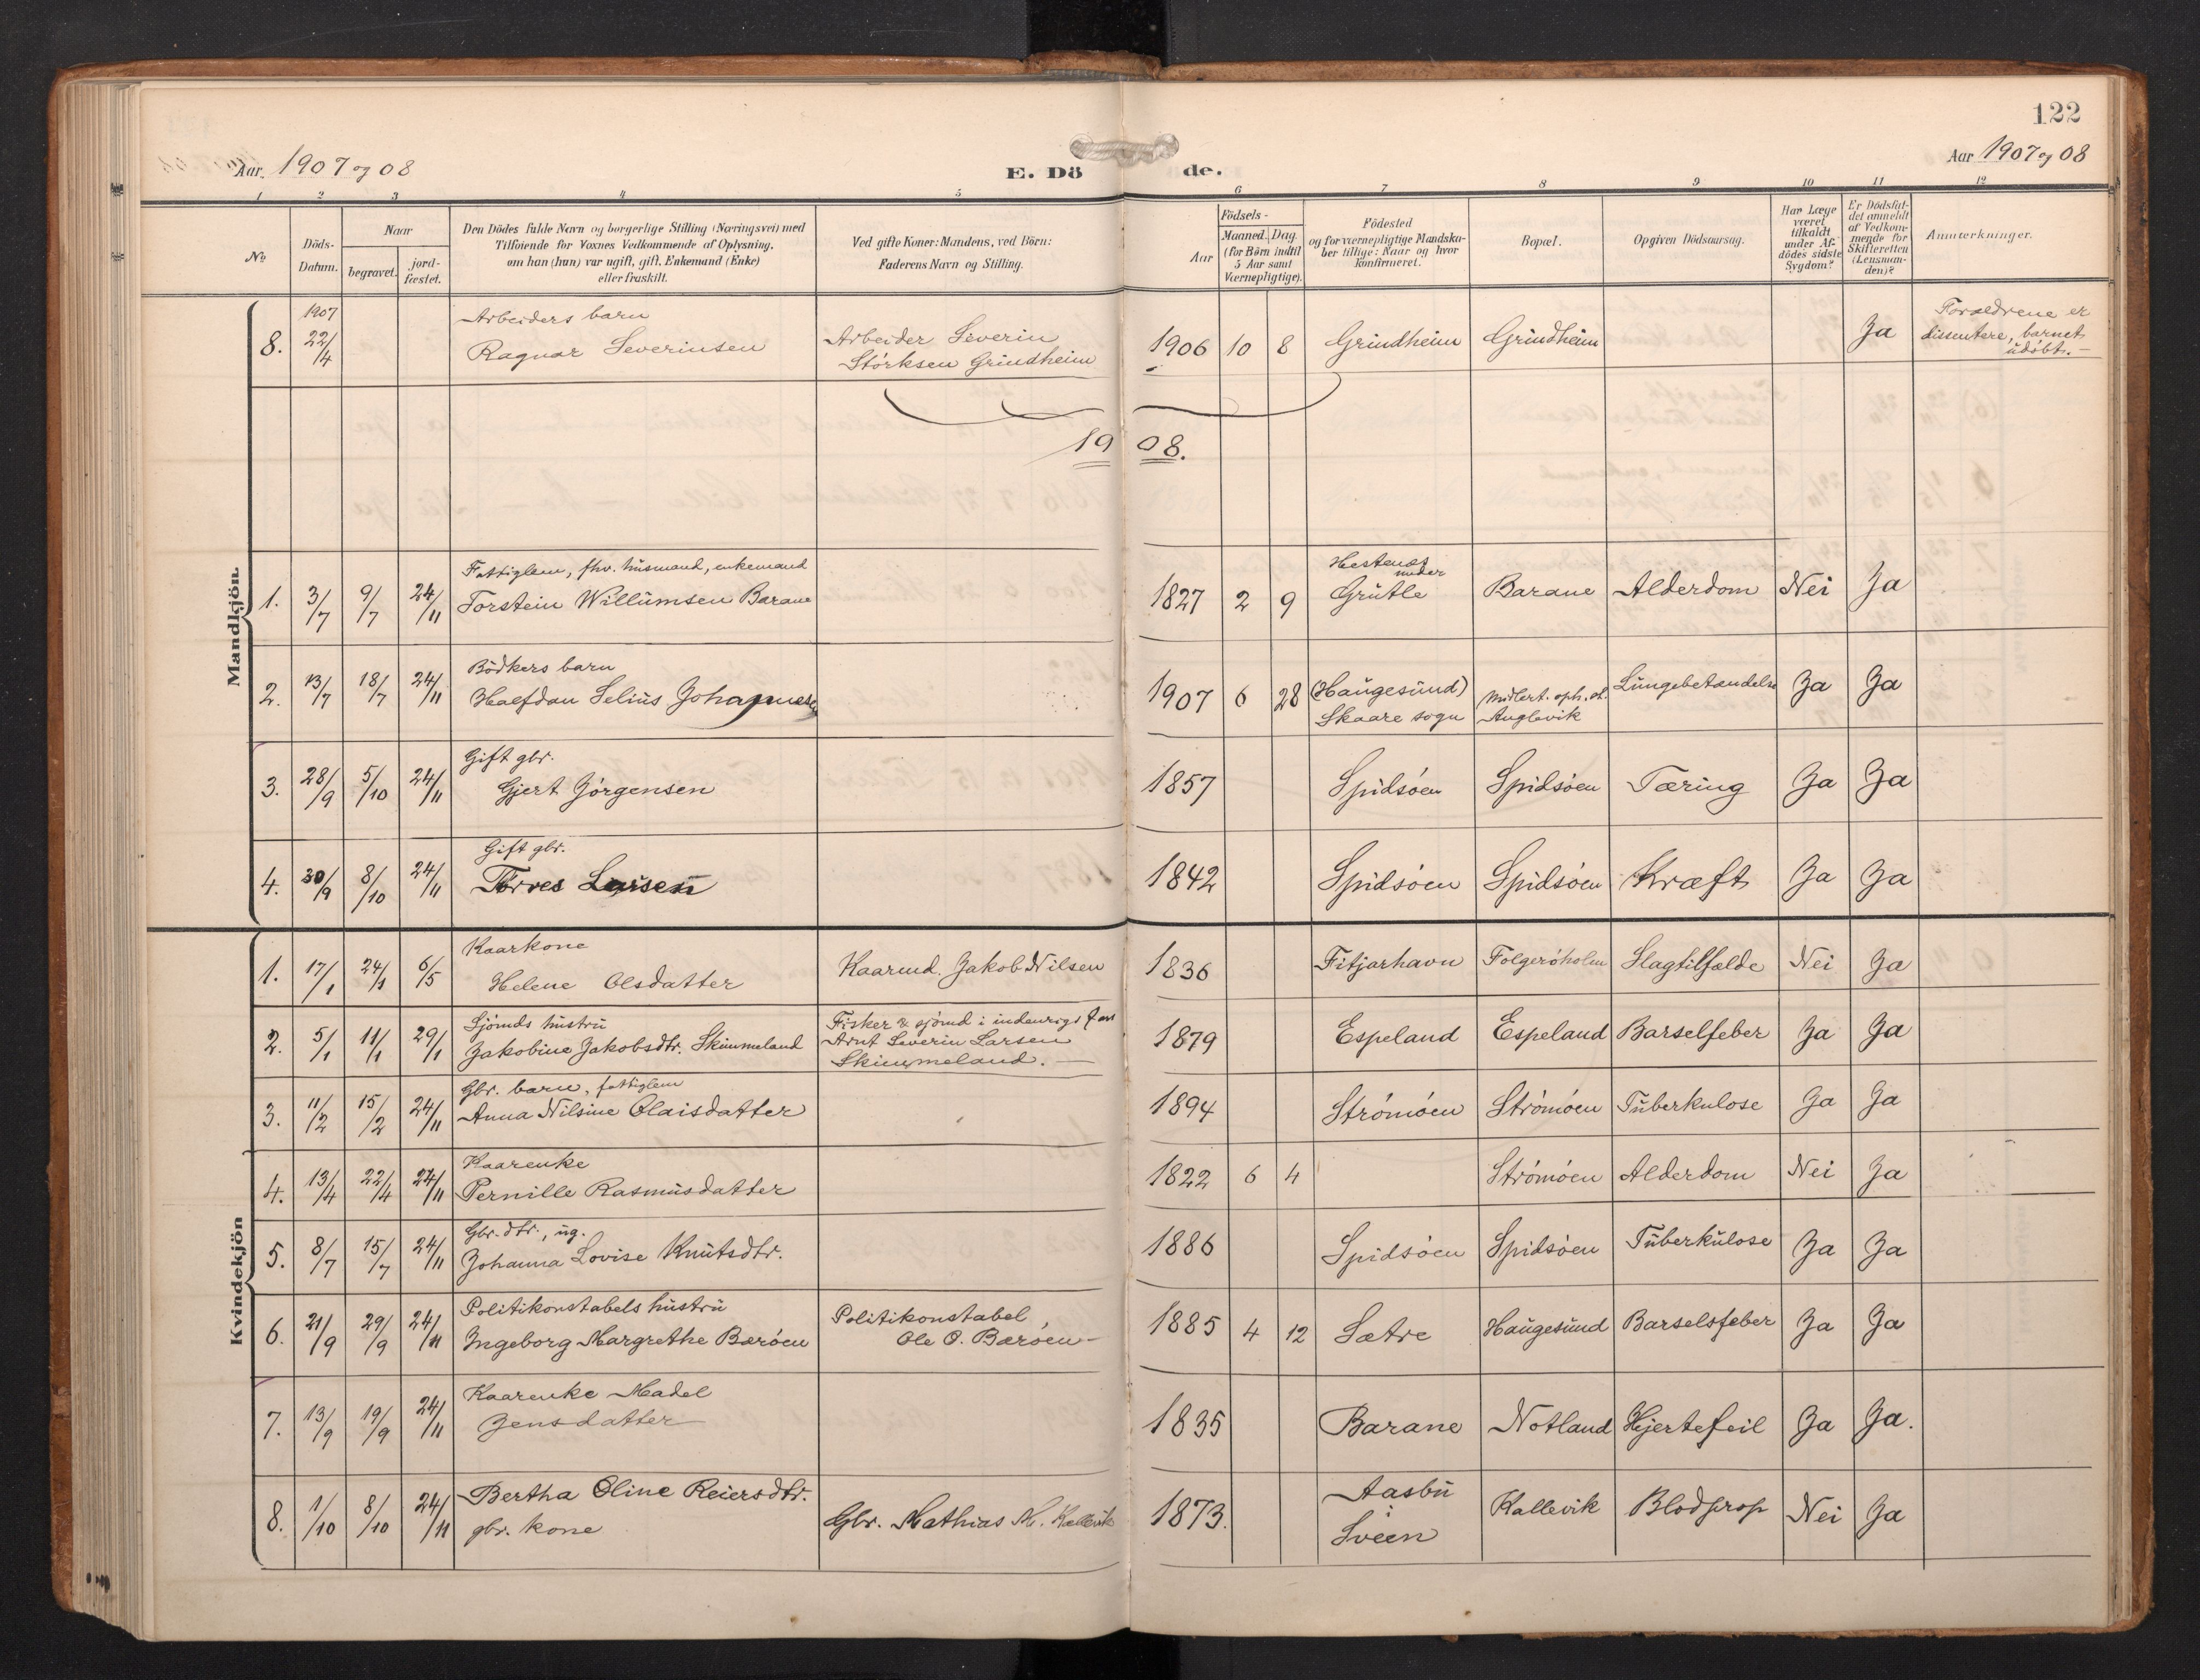 122
Aar. 1907 og 08
E. Dö de.
Aar 1907 og 08
1 2 3 4 5 6 7 8 9 10 11 12
No
Döds-
Datum.
Naar
begravet.
jord-
fæstet.
Den Dödes fulde Navn og borgerlige Stilling (Næringsvei) med
Tilföiende for Voxnes Vedkommende af Oplysning,
om han (hun) var ugift, gift, Enkemand (Enke)
eller fraskilt.
Ved gifte Koner: Mandens, ved Börn:
Faderens Navn og Stilling.
Födsels-
Aar
Maaned. Dag
(for Börn indtil
5 Aar samt
Værnepligtige).
Födested
og for værnepligtige Mandska-
ber tillige: Naar og hvor
konfirmeret.
Bopæl.
Opgiven Dödsaarsag.
Har Læge
været
tilkaldt
under Af-
dödes sidste
Sygdom?
Er Dödsfal-
det anmeldt
af Vedkom-
mende for
Skifteretten
(Lensman-
den)?
Anmerkninger.
Mandkjön.
8. 1907 22/4 Arbeiders barn
Ragnar Severinsen
Arbeider Severin
Störksen Grindheim
1906 10 8 Grindheim Grindheim Ja
Forældrene er
dissentere, barnet
udöbt. —
19 08.
1. 3/7 9/7 24/11 Fattiglem, fhv. husmand, enkemand
Torstein Willumsen Barane
1827 2 9 Hestenes
under
Grutle
Barane Alderdom Nei Ja
2. 13/7 18/7 24/11 Bödkers barn
Halfdan Selius Johannesen
1907 6 28 (Haugesund)
Skaare sogn
Midlert. oph. st.
Anglevik
Lungebetændelse Ja Ja
3. 28/9 5/10 24/11 Gift gbr.
Gjert Jörgensen
1857 Spidsöen Spidsöen Tæring Ja Ja
4. 30/9 8/10 24/11 Gift gbr.
Törres Larsen
1842 Spidsöen Spidsöen Kræft Ja Ja
Kvindekjön
1. 17/1 24/1 6/5 Kaarkone
Helene Olsdatter
Kaarmd. Jakob Nilsen
1836 Fitjarhavn Folgeröholm Slagtilfælde Nei Ja
2. 5/1 11/1 29/1 Sjömds hustru
Jakobine Jakobsdtr. Skimmeland
Fisker & sjömd i indenrigs fart
Arnt Severin Larsen
Skimmeland. —
1879 Espeland Espeland Barselfeber Ja Ja
3. 11/2 15/2 24/11 Gbr. barn, fattiglem
Anna Nilsine Olaisdatter
1894 Strömöen Strömöen Tuberkulose Ja Ja
4. 13/4 22/4 24/11 Kaarenke
Pernille Rasmusdatter
1822 6 4 Strömöen Alderdom Nei Ja
5. 8/7 15/7 24/11 Gbr. dtr., ug.
Johanna Lovise Knutsdtr.
1886 Spidsöen Spidsöen Tuberkulose Ja Ja
6. 21/9 29/9 24/11 Politikonstabels hustru
Ingeborg Margrethe Baröen
Politikonstabel
Ole O. Baröen —
1885 4 12 Sætre Haugesund Barselsfeber Ja Ja
7. 13/9 19/9 24/11 Kaarenke Madel
Jensdatter
1835 Barane Notland Hjertefeil Ja Ja.
8. 1/10 8/10 24/11 Bertha Oline Reiersdtr.
gbr. kone
Gbr. Mathias M. Kallevik
1873. Aasbu
Sveen
Kallevik Blodprop Nei Ja